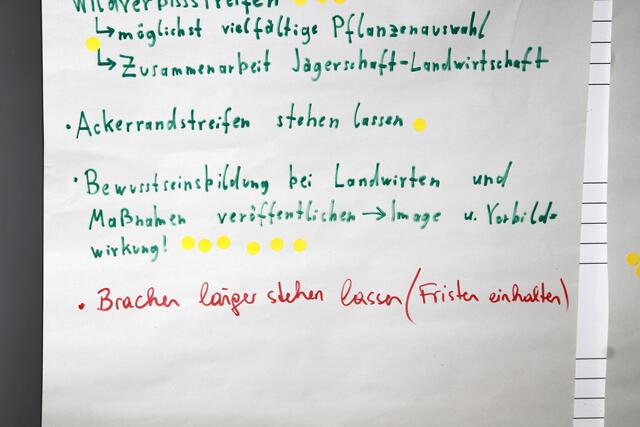 Wildverbissstreifen
↳ möglichst vielfältige Pflanzenauswahl
↳ Zusammenarbeit Jägerschaft-Landwirtschaft
• Ackerrandstreifen stehen lassen
• Bewusstseinsbildung bei Landwirten und
Maßnamen veröffentlichen → Image u. Vorbild-
wirkung!
• Brachen länger stehen lassen (Fristen einhalten)